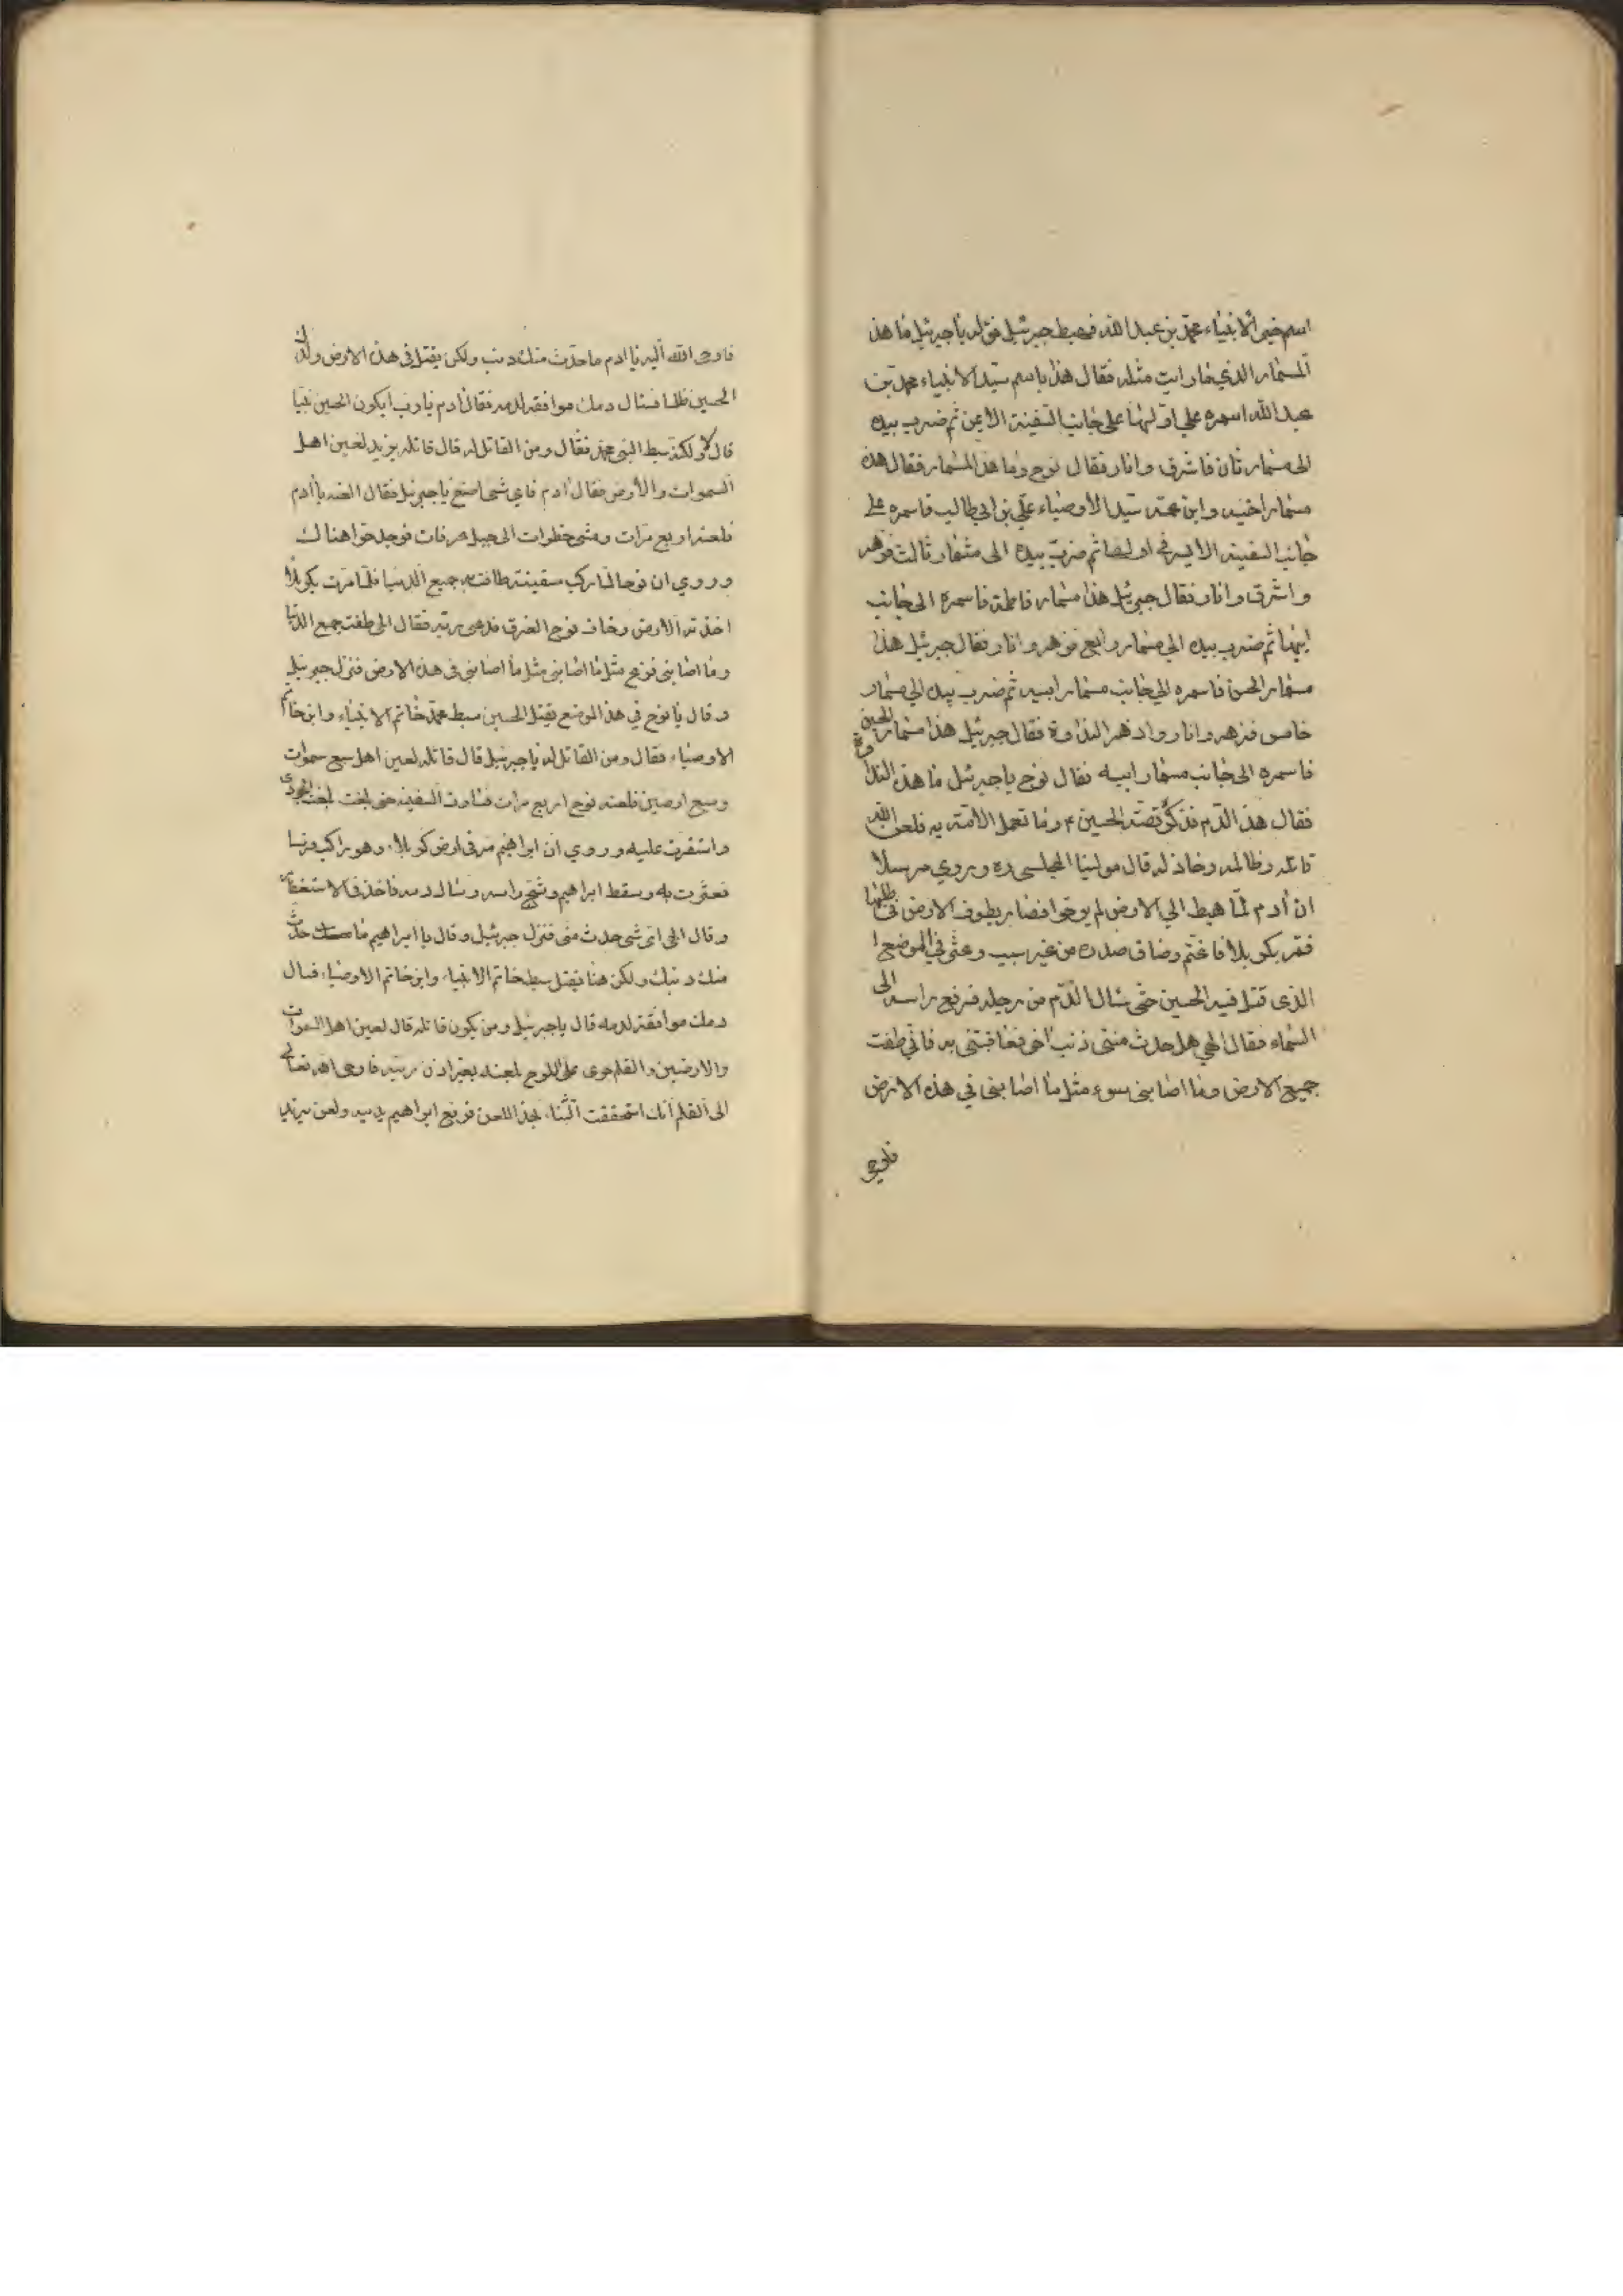 اسم خير الانبياء محمد بن عبد الله فهبط جبرئيل فقال له يا جبرئيل ما هذا
المسمار الذي ما رايت مثله فقال هذا باسم سيد الانبياء محمد بن
عبد الله اسمره على اولها على جانب السفينة الايمن ثم ضرب بيده
الى مسمار ثان فاشرق وانار فقال نوح وما هذا المسمار فقال هذا
مسمار اخيه وابن عمه سيد الاوصياء علي بن ابي طالب فاسمره على
جانب السفينة الايسر في اولها ثم ضرب بيده الى مسمار ثالث فزهر
واشرق وانار فقال جبرئيل هذا مسمار فاطمة فاسمره الى جانب
ابيها ثم ضرب بيده الى مسمار رابع فزهر وانار فقال جبرئيل هذا
مسمار الحسن فاسمره الى جانب مسمار ابيه ثم ضرب بيده الى مسمار
خامس فزهر وانار واظهر النداوة فقال جبرئيل هذا مسمار الحسين
فاسمره الى جانب مسمار ابيه فقال نوح يا جبرئيل ما هذه النداوة
فقال هذا الدم فذكر قصة الحسين ع وما تعمل الامة به فلعن الله
قاتله وظالمه وخاذله قال مولينا المجلسي ره وروي مرسلا
ان آدم لما هبط الى الارض لم ير حوا فصار يطوف الارض في طلبها
فمر بكربلا فاغتم وضاق صدره من غير سبب وعثر في الموضع
الذى قتل فيه الحسين حتى سال الدم من رجله فرفع راسه الى
السماء فقال الهي هل حدث مني ذنب آخر فعاقبتني به فاني طفت
جميع الارض وما اصابني سوء مثل ما اصابني في هذه الارض
فاوحى
فاوحى الله اليه يا ادم ما حدث منك ذنب ولكن يقتل في هذه الارض ولدك
الحسين ظلما فسال دمك موافقة لدمه فقال آدم يا رب ايكون الحسين نبيا
قال لا ولكنه سبط النبي محمد فقال ومن القاتل له قال قاتله يزيد لعين اهل
السموات والارض فقال آدم فاي شئ اصنع يا جبرئيل فقال العنه يا آدم
فلعنه اربع مرات ومشى خطوات الى جبل عرفات فوجد حوا هناك
وروي ان نوحا لما ركب سفينته طافت به جميع الدنيا فلما مرت بكربلا
اخذته الارض وخاف نوح الغرق فدعى ربه فقال الهي طفت جميع الدنيا
وما اصابني فزع مثل ما اصابني مثل ما اصابني في هذه الارض فنزل جبرئيل
وقال يا نوح في هذا الموضع يقتل الحسين سبط محمد خاتم الانبياء وابن خاتم
الاوصياء فقال ومن القاتل له يا جبرئيل قال قاتله لعين اهل سبع سموات
وسبع ارضين فلعنه نوح اربع مرات فسارت السفينة حتى بلغت الجودى
واستقرت عليه وروي ان ابراهيم مر في ارض كربلا وهو راكب فرسا
فعثرت به وسقط ابراهيم وشج راسه وسال دمه فاخذ في الاستغفار
وقال الهي اي شئ حدث مني فنزل جبرئيل وقال يا ابراهيم ما حدث
منك ذنب ولكن هنا يقتل سبط خاتم الانبياء وابن خاتم الاوصياء فسال
دمك موافقة لدمه قال يا جبرئيل ومن يكون قاتله قال لعين اهل السموات
والارضين والقلم جرى على اللوح بلعنه بغير اذن ربه فاوحى الله تعالى
الى القلم انك استحققت الثناء بهذا اللعن فرفع ابراهيم يديه ولعن يزيد